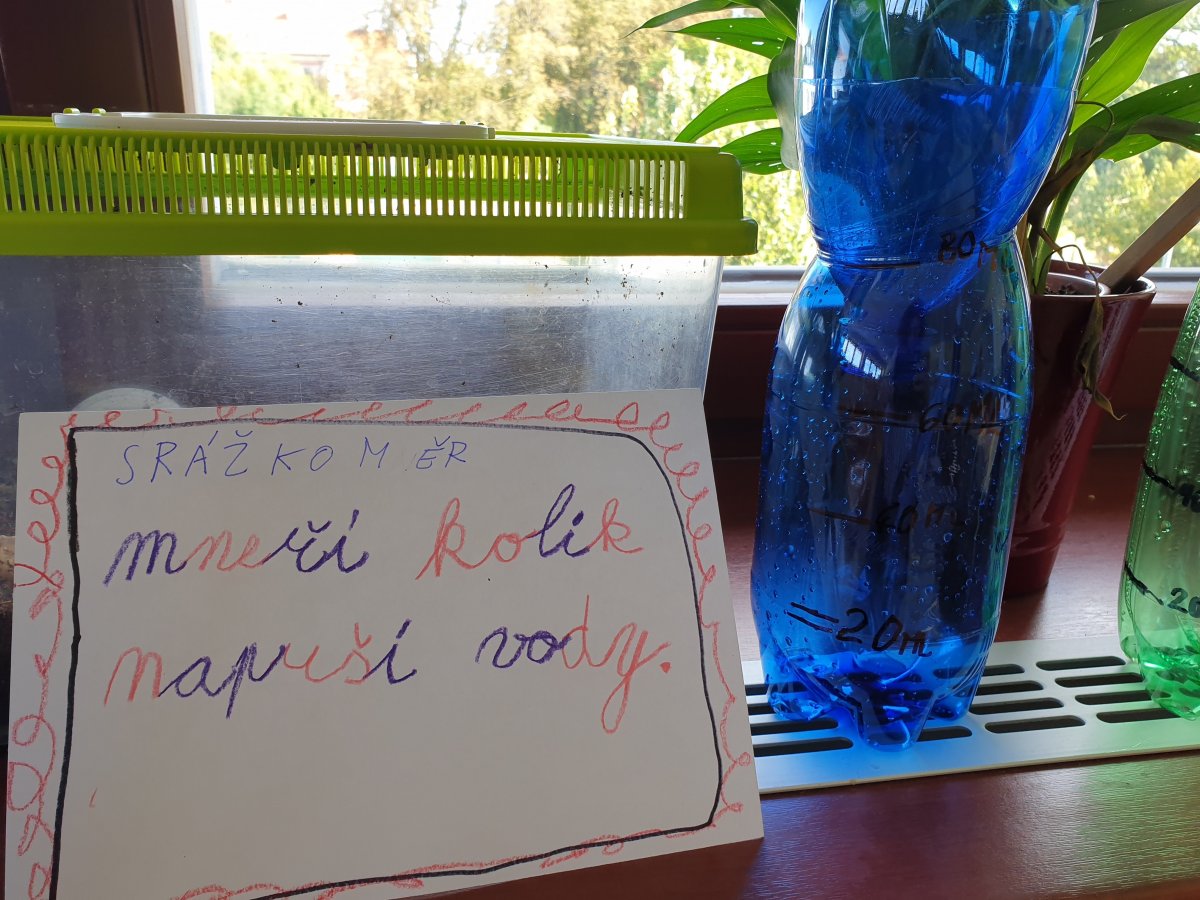 SRÁŽKOMĚR
mneří kolik
naprší vody.
80m
60m
20m